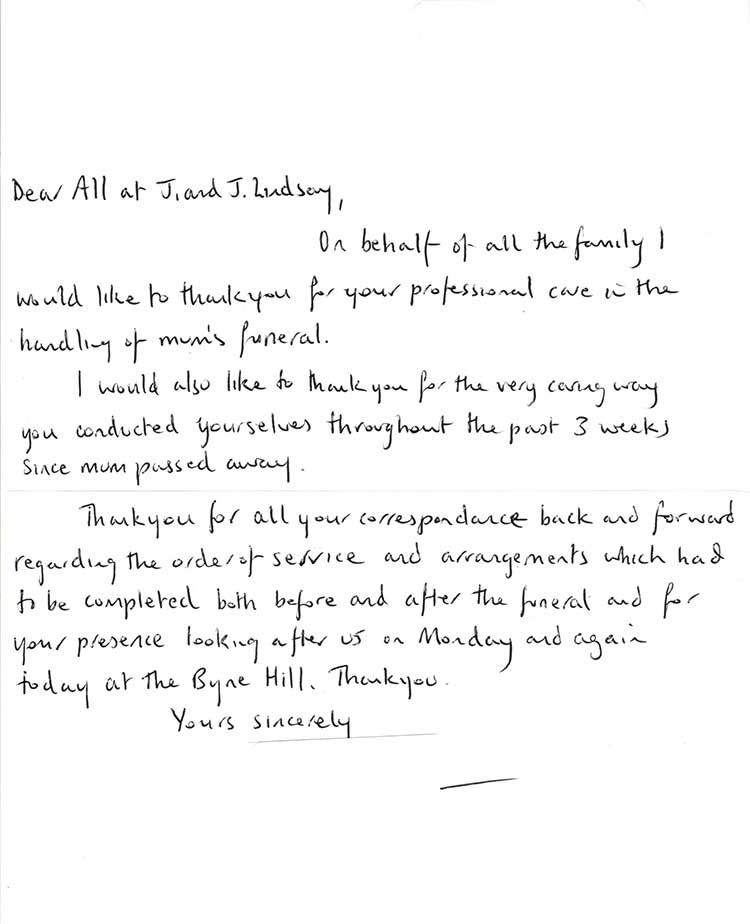 Dear All at J. and J. Lindsay,
On behalf of all the family I
would like to thankyou for your professional care in the
handling of mum's funeral.
I would also like to thank you for the very caring way
you conducted yourselves throughout the past 3 weeks
since mum passed away.
Thankyou for all your correspondance back and forward
regarding the order of service and arrangements which had
to be completed both before and after the funeral and for
your presence looking after us on Monday and again
today at the Byne Hill. Thankyou.
Yours sincerely